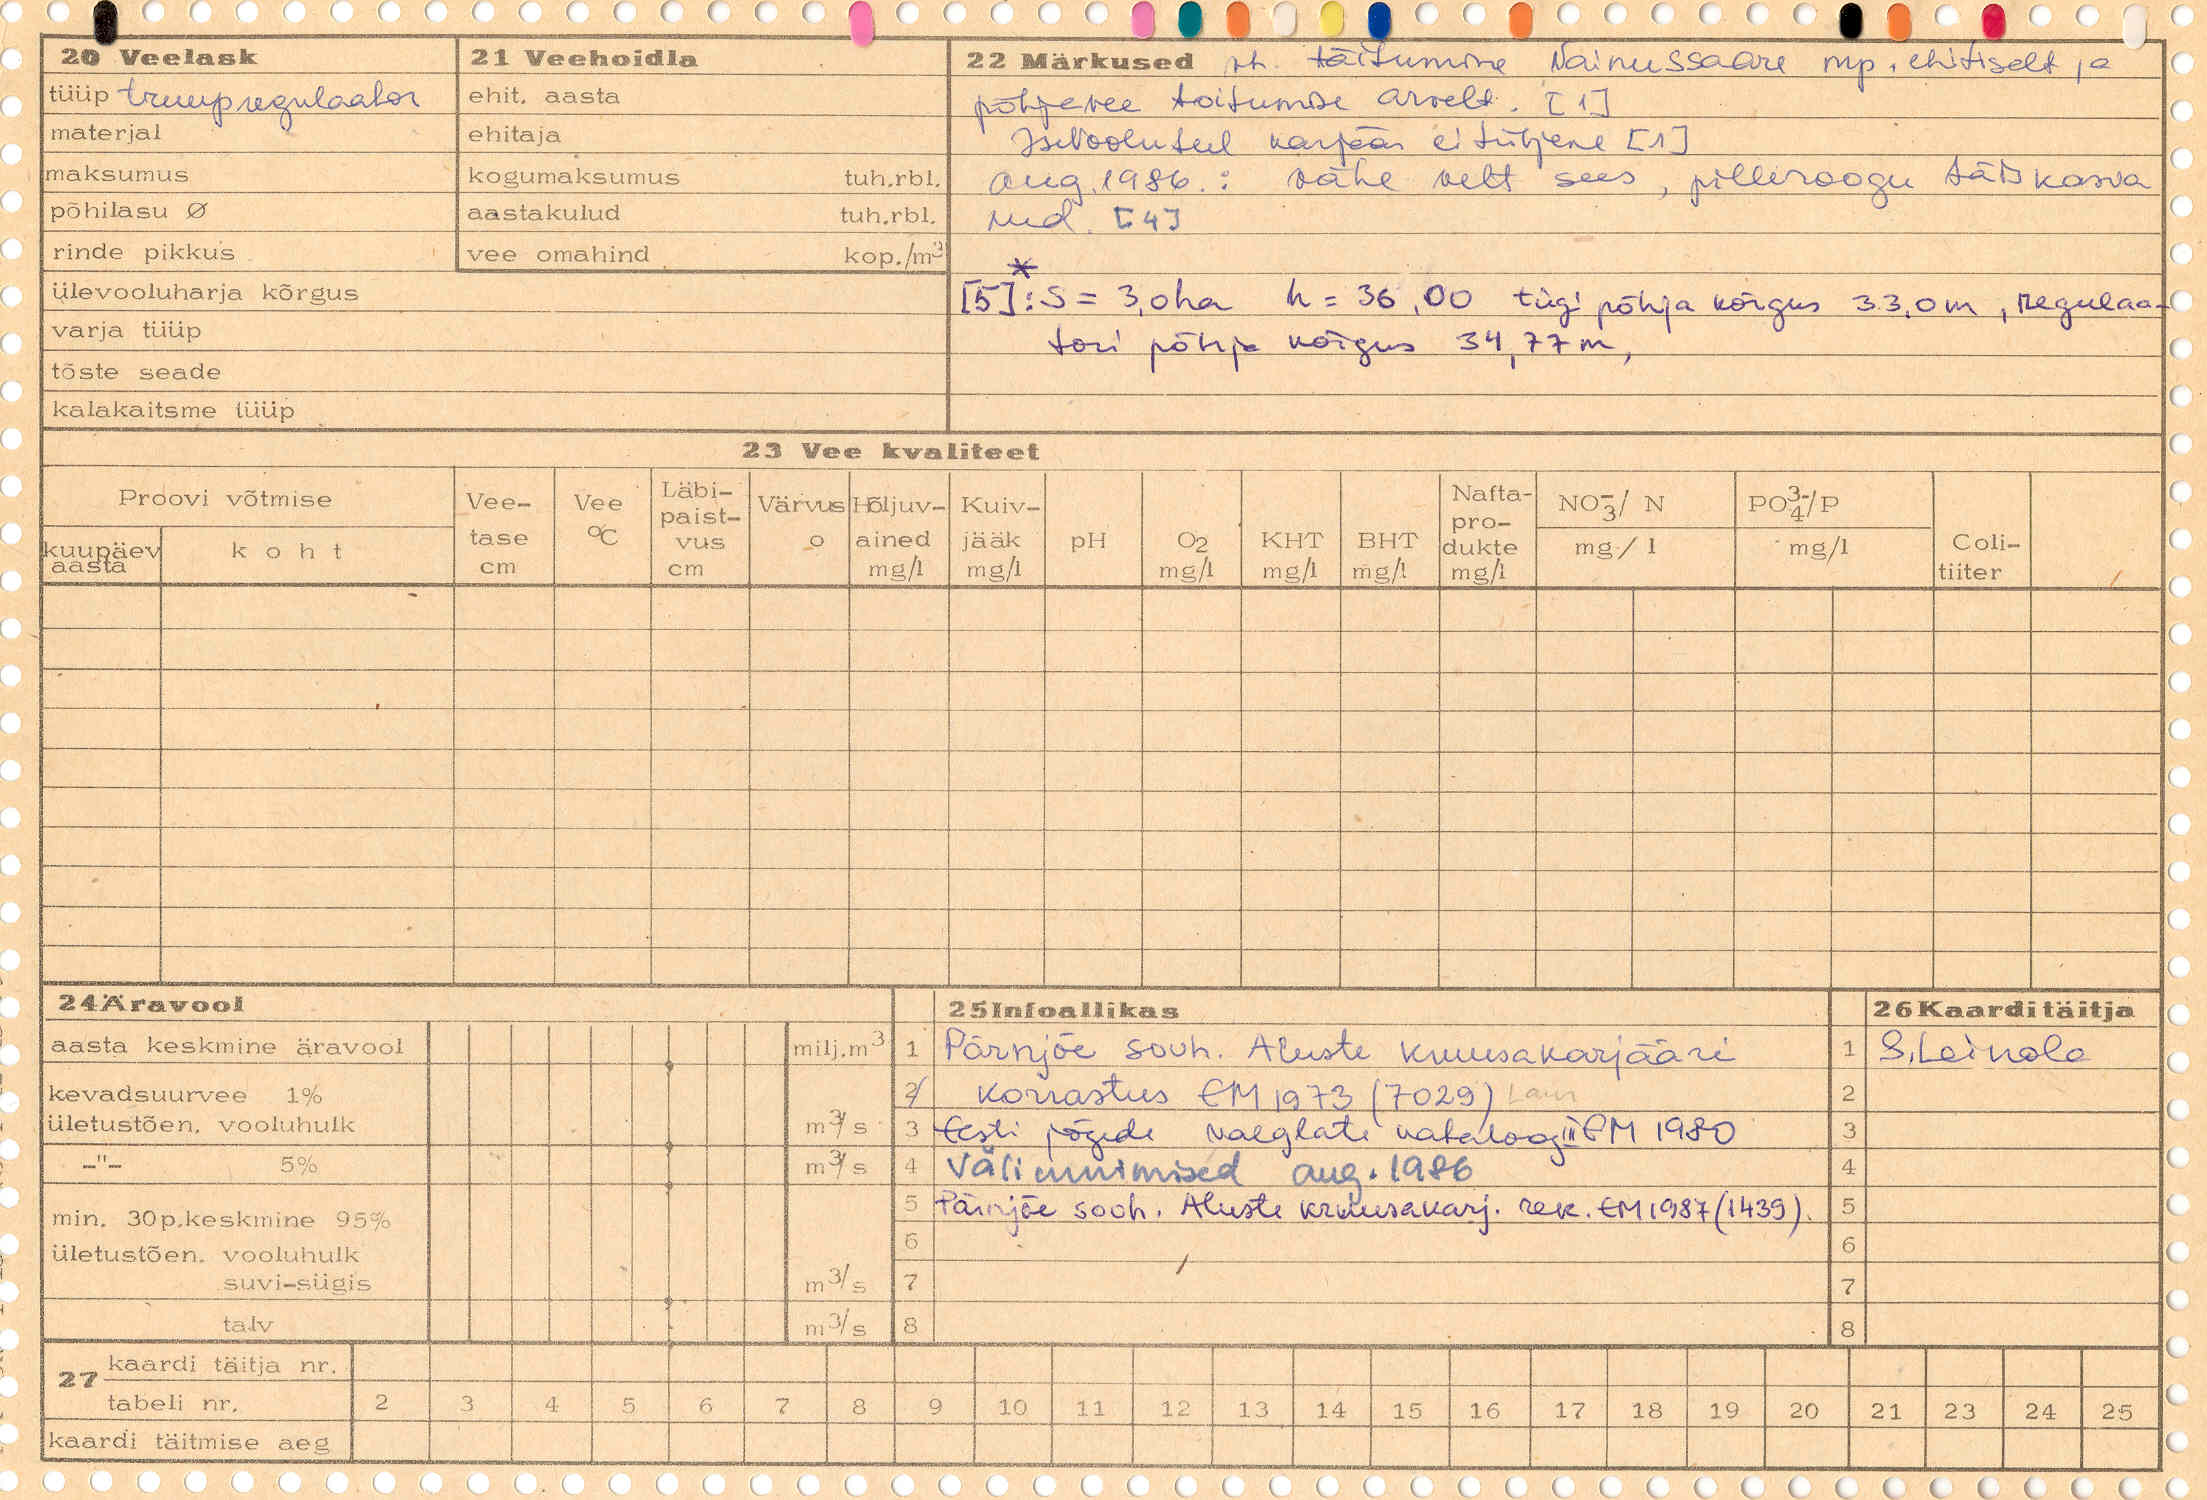 20 Veelask
tüüp truupregulaator
materjal
maksumus
põhilasu Ø
rinde pikkus
ülevooluharja kõrgus
varja tüüp
tõste seade
kalakaitsme tüüp
21 Veehoidla
ehit. aasta
ehitaja
kogumaksumus tuh.rbl.
aastakulud tuh.rbl.
vee omahind kop./m³
22 Märkused vh. täitumine Nainussaare mp. ehitiselt ja
põhjavee toitumise arvelt. [1]
Isevooluteel karjäär ei tühjene [1]
aug. 1986.: vähe vett sees, pilliroogu täis kasva
nud. [4]
*
[5]: S = 3,0ha h = 36,00 tiigi põhja kõrgus 33,0m, regulaa-
tori põhja kõrgus 34,77m,
23 Vee kvaliteet
Proovi võtmise
kuupäev aasta
koht
Vee-tase cm
Vee °C
Läbi-paist-vus cm
Värvus o
Hõljuv-ained mg/l
Kuiv-jääk mg/l
pH
O2 mg/l
KHT mg/l
BHT mg/l
Nafta-pro-dukte mg/l
NO3-/ N mg/l
PO4 3-/P mg/l
Coli-tiiter
24 Äravool
aasta keskmine äravool milj.m³
kevadsuurvee 1%
ületustõen. vooluhulk m³/s
-"- 5% m³/s
min. 30p.keskmine 95%
ületustõen. vooluhulk
suvi-sügis m³/s
talv m³/s
25 Infoallikas
1 Pärnjõe sovh. Aluste kruusakarjääri
2 korrastus EM 1973 (7029)
3 Eesti jõgede valglate kataloog II EM 1980
4 Väliuurimised aug. 1986
5 Pärnjõe sovh. Aluste kruusakarj. rek. EM 1987 (1439).
6
7
8
26 Kaarditäitja
1 S. Leinola
2
3
4
5
6
7
8
27 kaardi täitja nr.
tabeli nr. 2 3 4 5 6 7 8 9 10 11 12 13 14 15 16 17 18 19 20 21 23 24 25
kaardi täitmise aeg